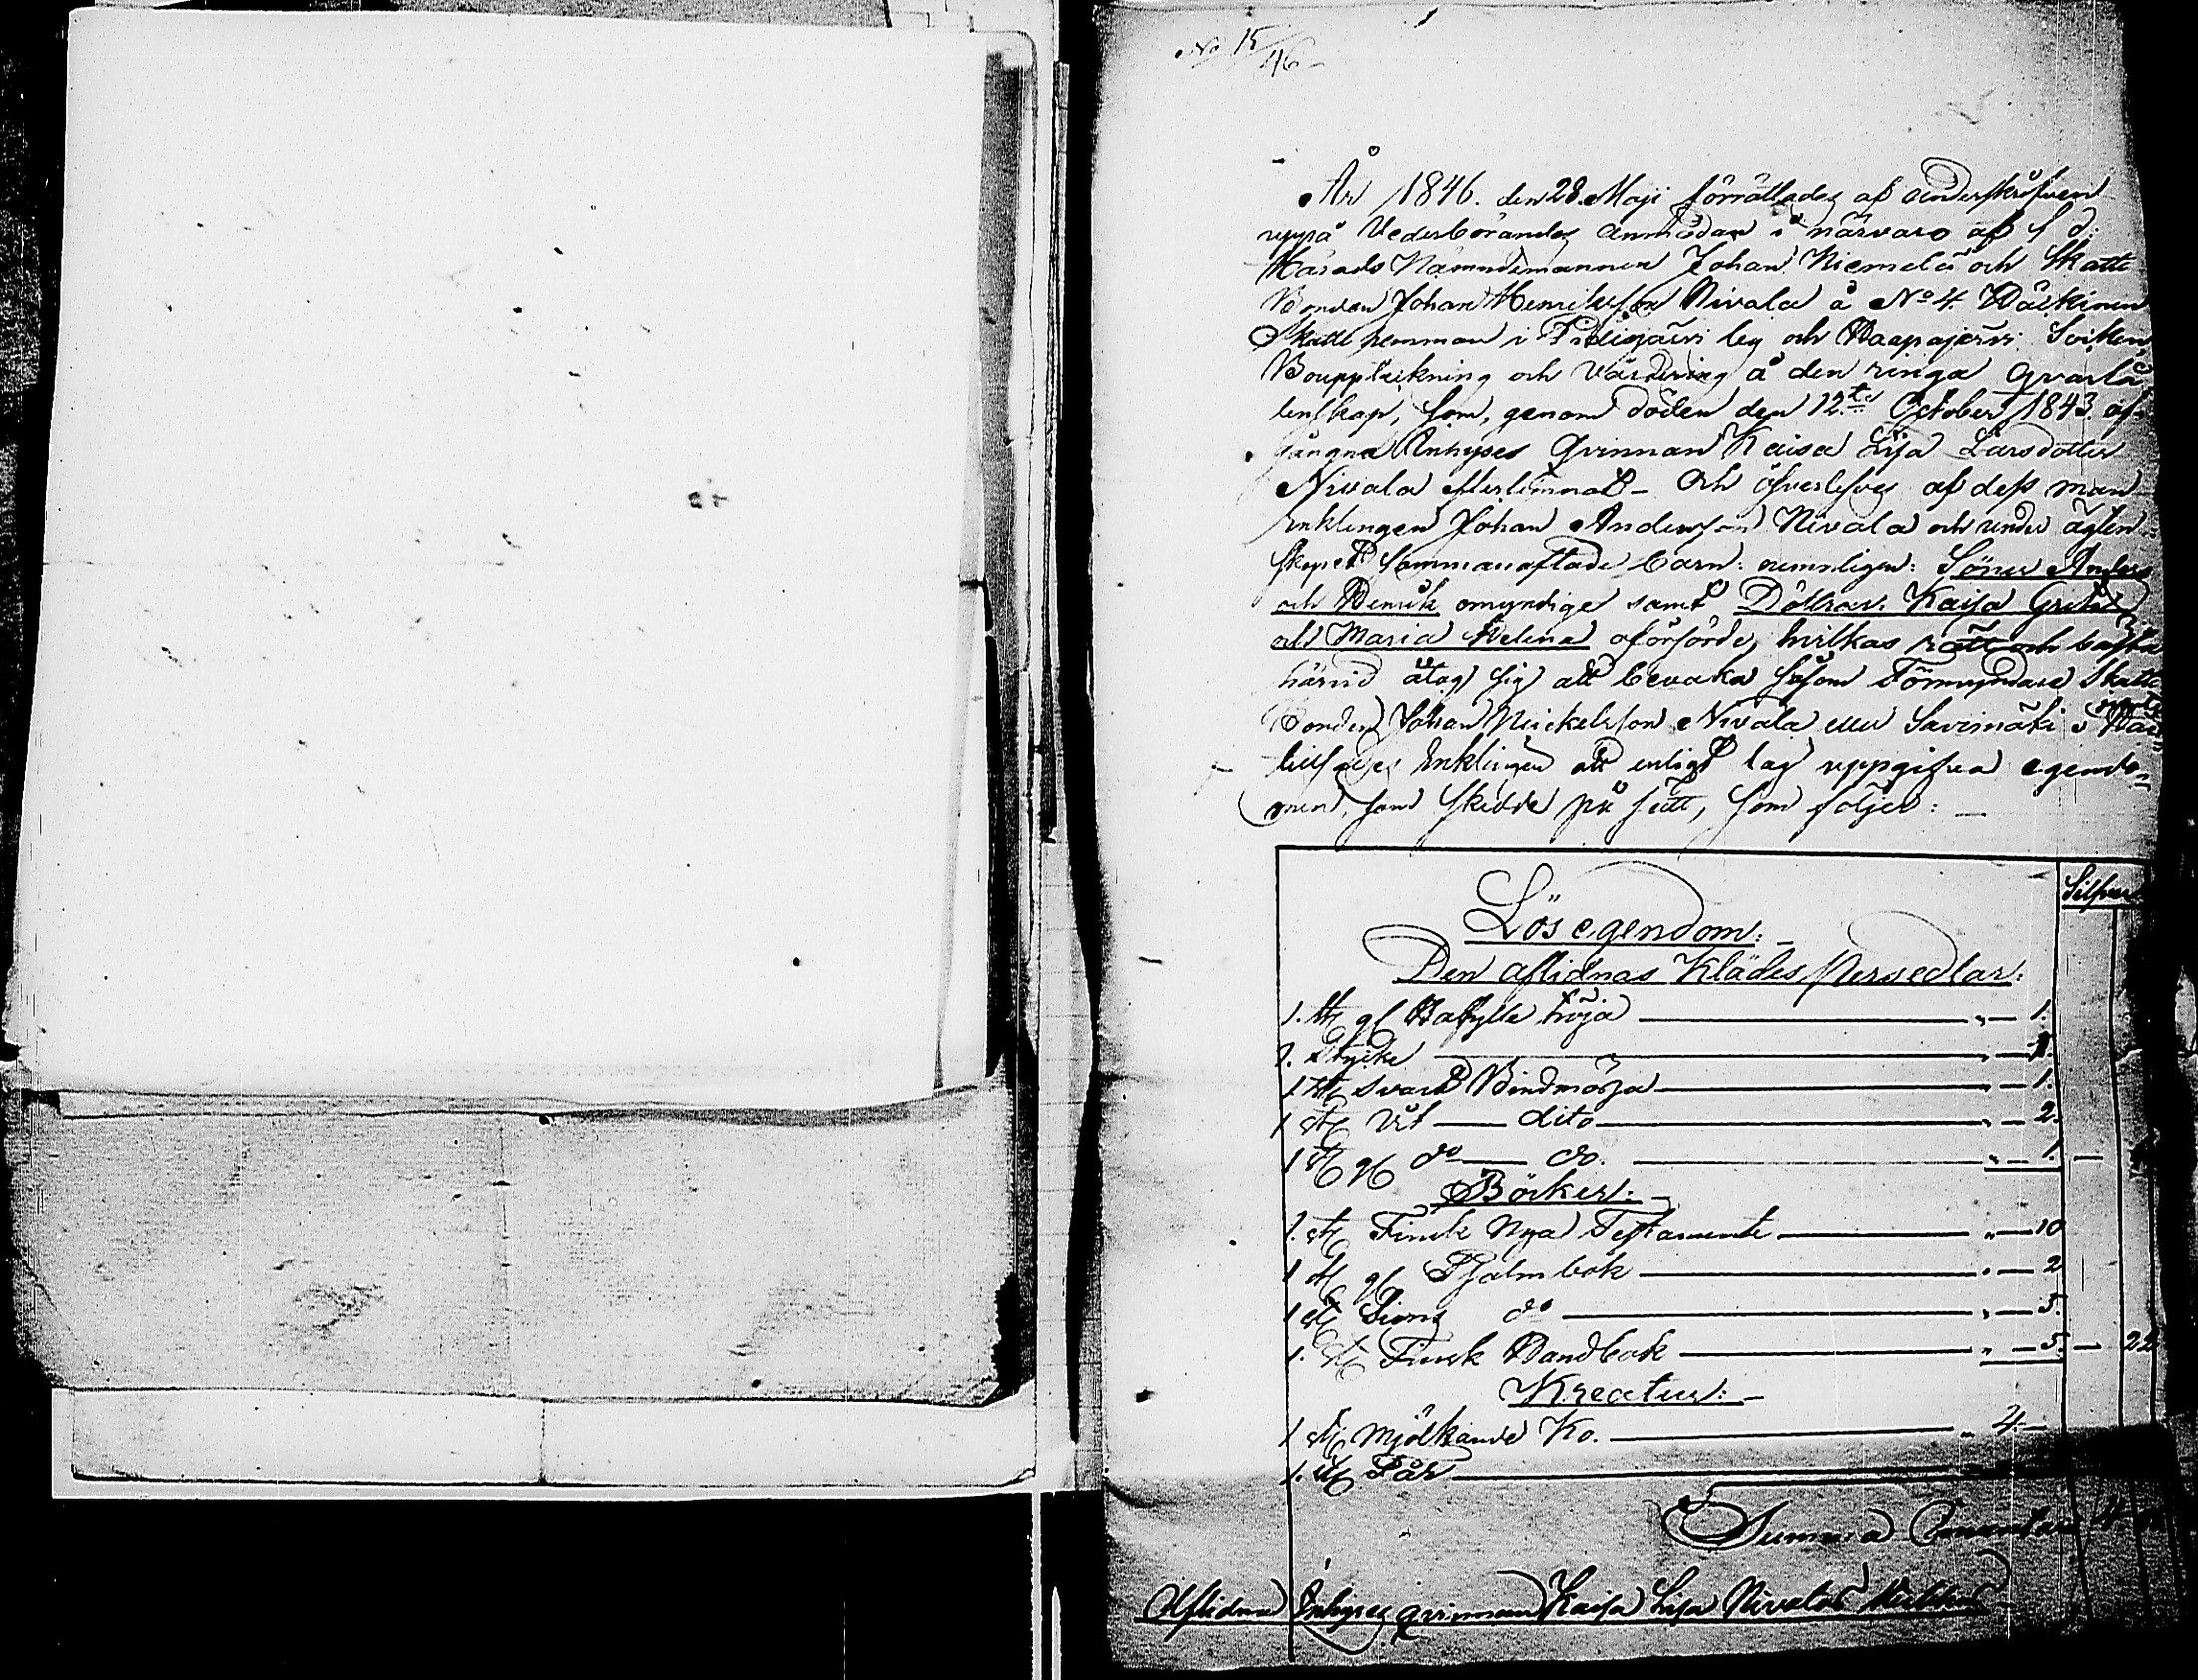 No 15/46
År 1846. den 28 Maji förrättades af underskrifven
uppå Vederbörandes anmodan i närvaro af f d:
Härads Nämndemannen Johan Niemelä och Skatte
Bonden Johan Henriksson Nivala å No 4
Skatte hemman i Pidisjärvi by och Haapajärvi Socken
Bouppteckning och Värdering å den ringa qvarlå
tenskap, som, genom döden den 12te October 1843 af
gångna Inhyses Qvinnan Kaisa Lisa Larsdotter
Nivala efterlemnat - och öfverlefves af dess man
Enklingen Johan Andersson Nivala och under ägten
skapet sammanaflade barn: nemnligen: Söner Anders
och Henrik omyndige samt Döttrar: Kaisa Greta
och Maria Helena oförsörde, hvilkas rätt och bästa
härvid åtog sig att bevaka såsom Förmyndare Skatte
Bonden Johan Nivala eller Savimäki
Enklingen att enligt lag uppgifva egendo-
men, som skedde på sätt, som följer: —
Silfver
Lös egendom: -
Den aflidnas Klädes Persedlar:
1. st gl tröja — „ — 1.
1. Stycke — „ —
1 st svart Bindmössa — „ — 1.
1 st vit — dito — „ — 2.
1 st gl do — do. — „ — 1 —
Böcker: -
1. st Finsk Nya Testamente — „ — 10
1 st gl Psalmbok — „ — 2
1 st Sions do — „ — 5.
1. st Finsk Handbok — „ — 5. — 22
Kreatur: -
1 st Mjölkande Ko. — „ 4. —
1. st Får —
Summa
Aflidna Inhyses qvinnan Kaisa Lisa Nivalas